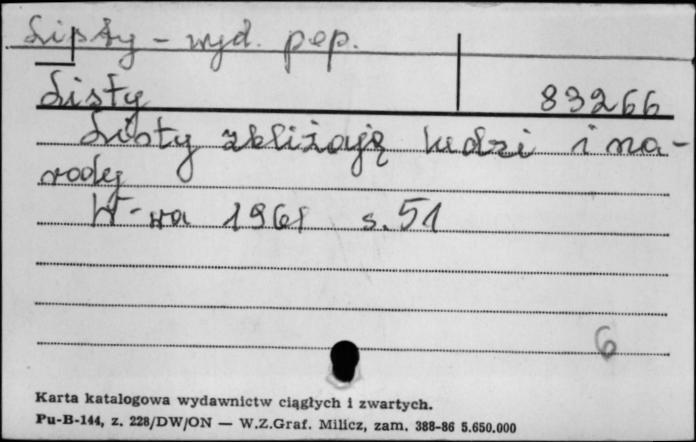 Listy - wyd. pop.
Listy 83266
Listy zbliżają ludzi i na-
rody
W-wa 1961 s. 51
6
Karta katalogowa wydawnictw ciągłych i zwartych.
Pu-B-144, z. 228/DW/ON — W.Z.Graf. Milicz, zam. 388-86 5.650.000